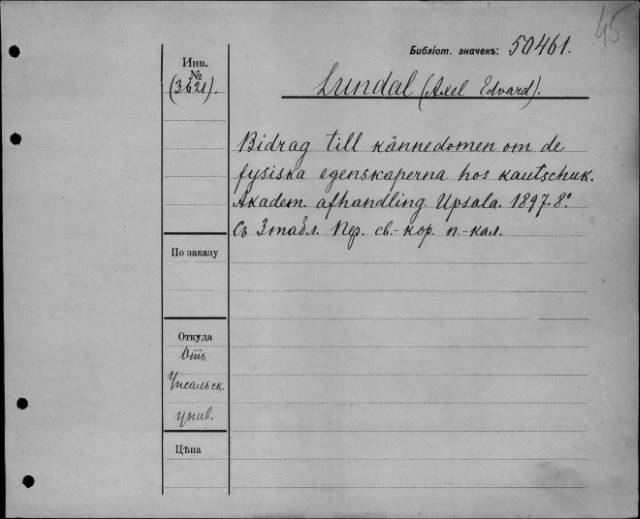 45
Библіот. значекъ: 50461.
Инв.
№
(3621).
Lundal (Axel Edvard).
Bidrag till kännedomen om de
fysiska egenskaperna hos kautschuk.
Akadem. afhandling Upsala. 1897. 8°
Съ 3 табл. Пер. св.-кор. п.-кал.
По заказу
Откуда
Отъ
Упсальск.
унив.
Цѣна